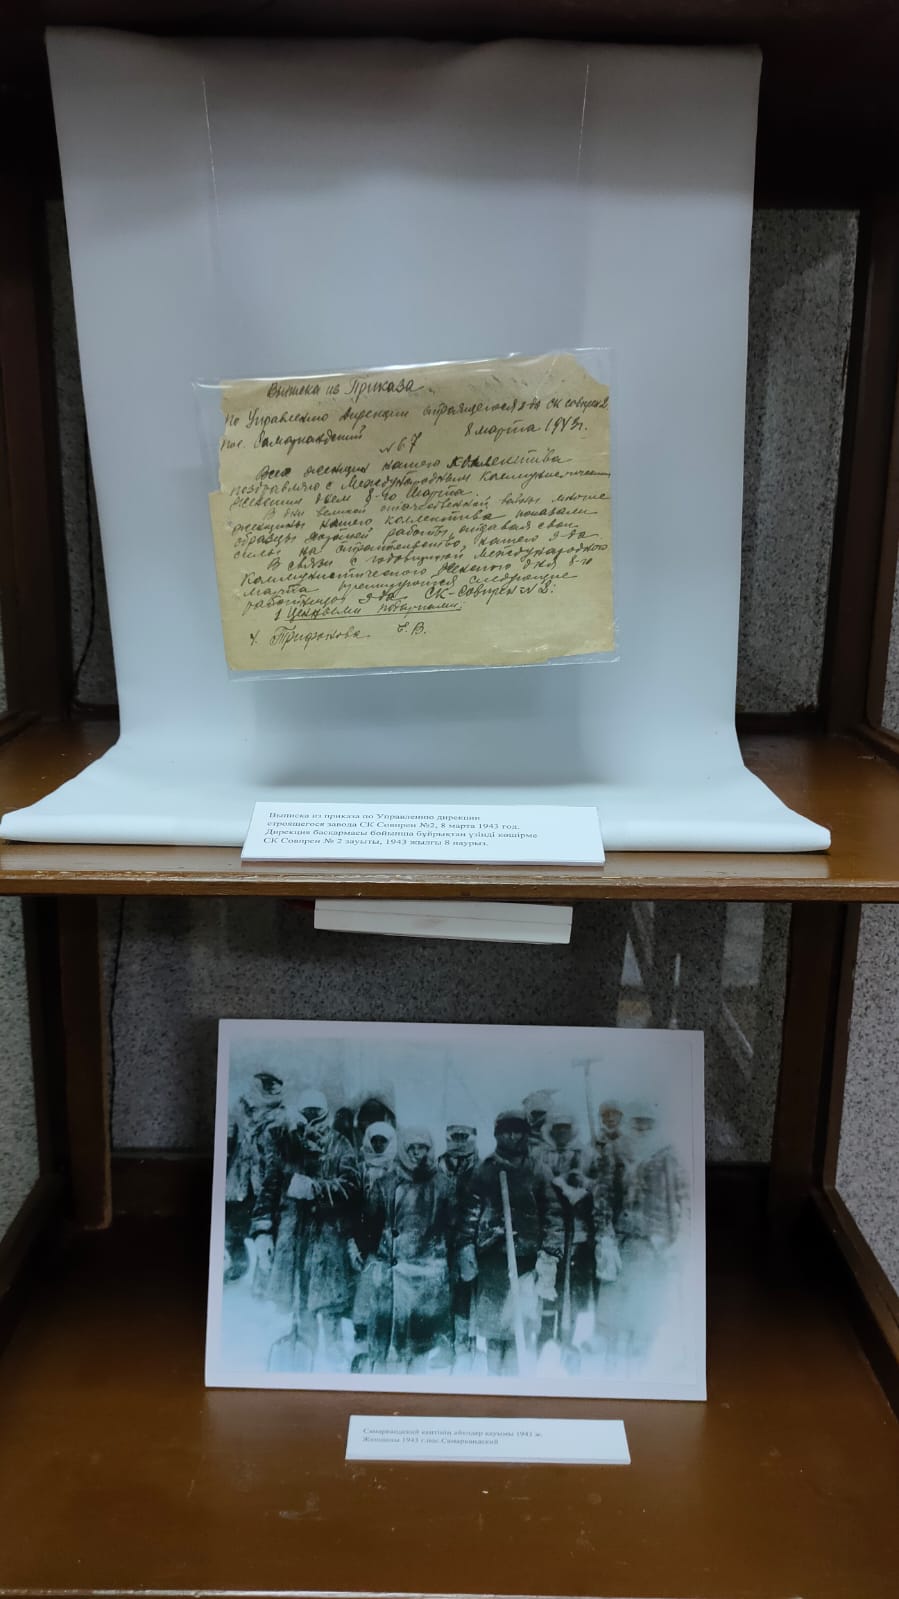 Выписка из Приказа
по Управлению дирекции строящегося з-да СК совпрен 2.
пос. Самаркандский 8 марта 1943 г.
№ 67
Всех женщин нашего коллектива
поздравляю с Международным Коммунистическим
женским днем 8-го Марта.
В дни великой отечественной войны многие
женщины нашего коллектива показали
образцы работы, отдавая свои
силы на строительство нашего з-да
В связи с годовщиной Международного
Коммунистического женского дня 8-го
марта премируются следующие
работницы з-да СК-Совпрен № 2:
1 Ценными подарками:
Е. В.
Выписка из приказа по Управлению дирекции
строящегося завода СК Совпрен №2, 8 марта 1943 год.
Дирекция басқармасы бойынша бұйрықтан үзінді көшірме
СК Совпрен № 2 зауыты, 1943 жылғы 8 наурыз.
Самаркандский кентінің әйелдер қауымы 1943 ж.
Женщины 1943 г. пос. Самаркандский